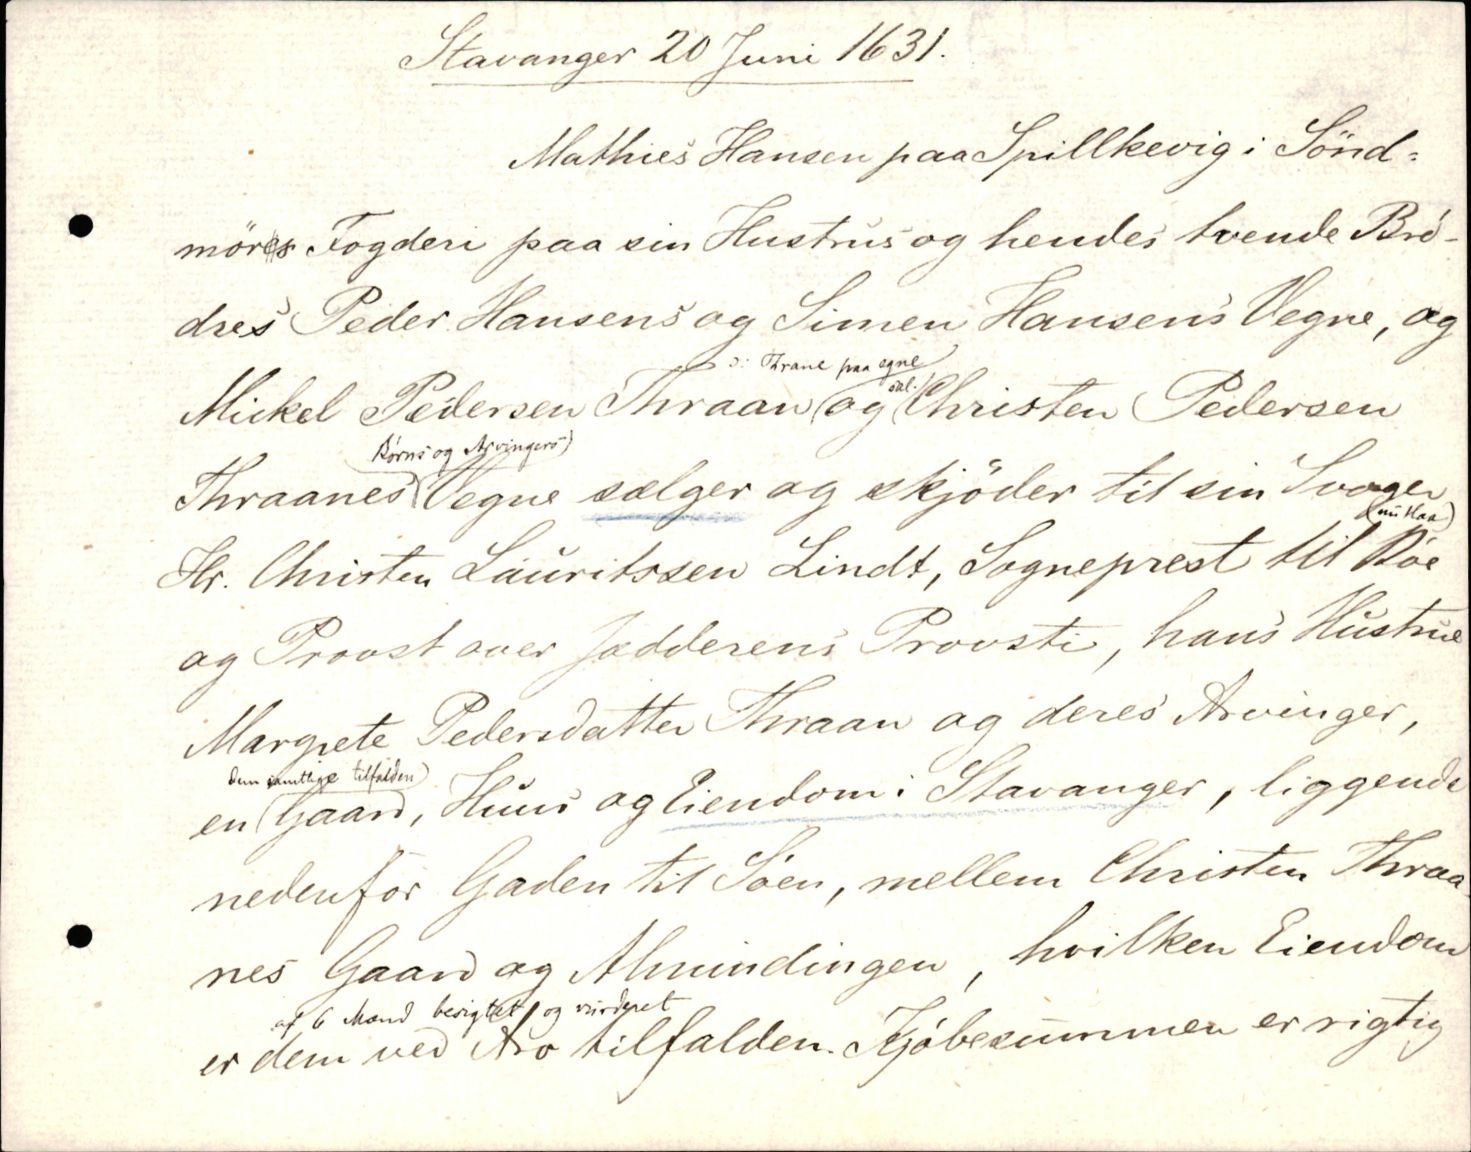 Stavanger 20 Juni 1631.
Mathies Hansen paa Spillkevig i Sönd-
möres Fogderi paa sin Hustrus og hendes tvende Brö-
dres Peder Hansens og Simen Hansens Vegne, og
ɔ: Thrane paa egne
sal.
Mickel Pedersen Thraan (og (Christen Pedersen
Börns og Arvingers)
Thraanes (Vegne sælger og skjöder til sin Svoger
(nu Haa)
Hr. Christen Lauritssen Lindt, Sogneprest til Böe
og Provst over Jædderens Provsti, hans Hustrue
Margrete Pedersdatter Thraan og deres Arvinger,
dem samtlige tilfalden)
en (Gaard, Huus og Eiendom i Stavanger, liggende
nedenfor Gaden til Söen, mellem Christen Thraa-
nes Gaard og Almindingen, hvilken Eiendom
af 6 Mænd besigtet og vurderet
er dem ved Arv tilfalden. Kjöbesummen er rigtig